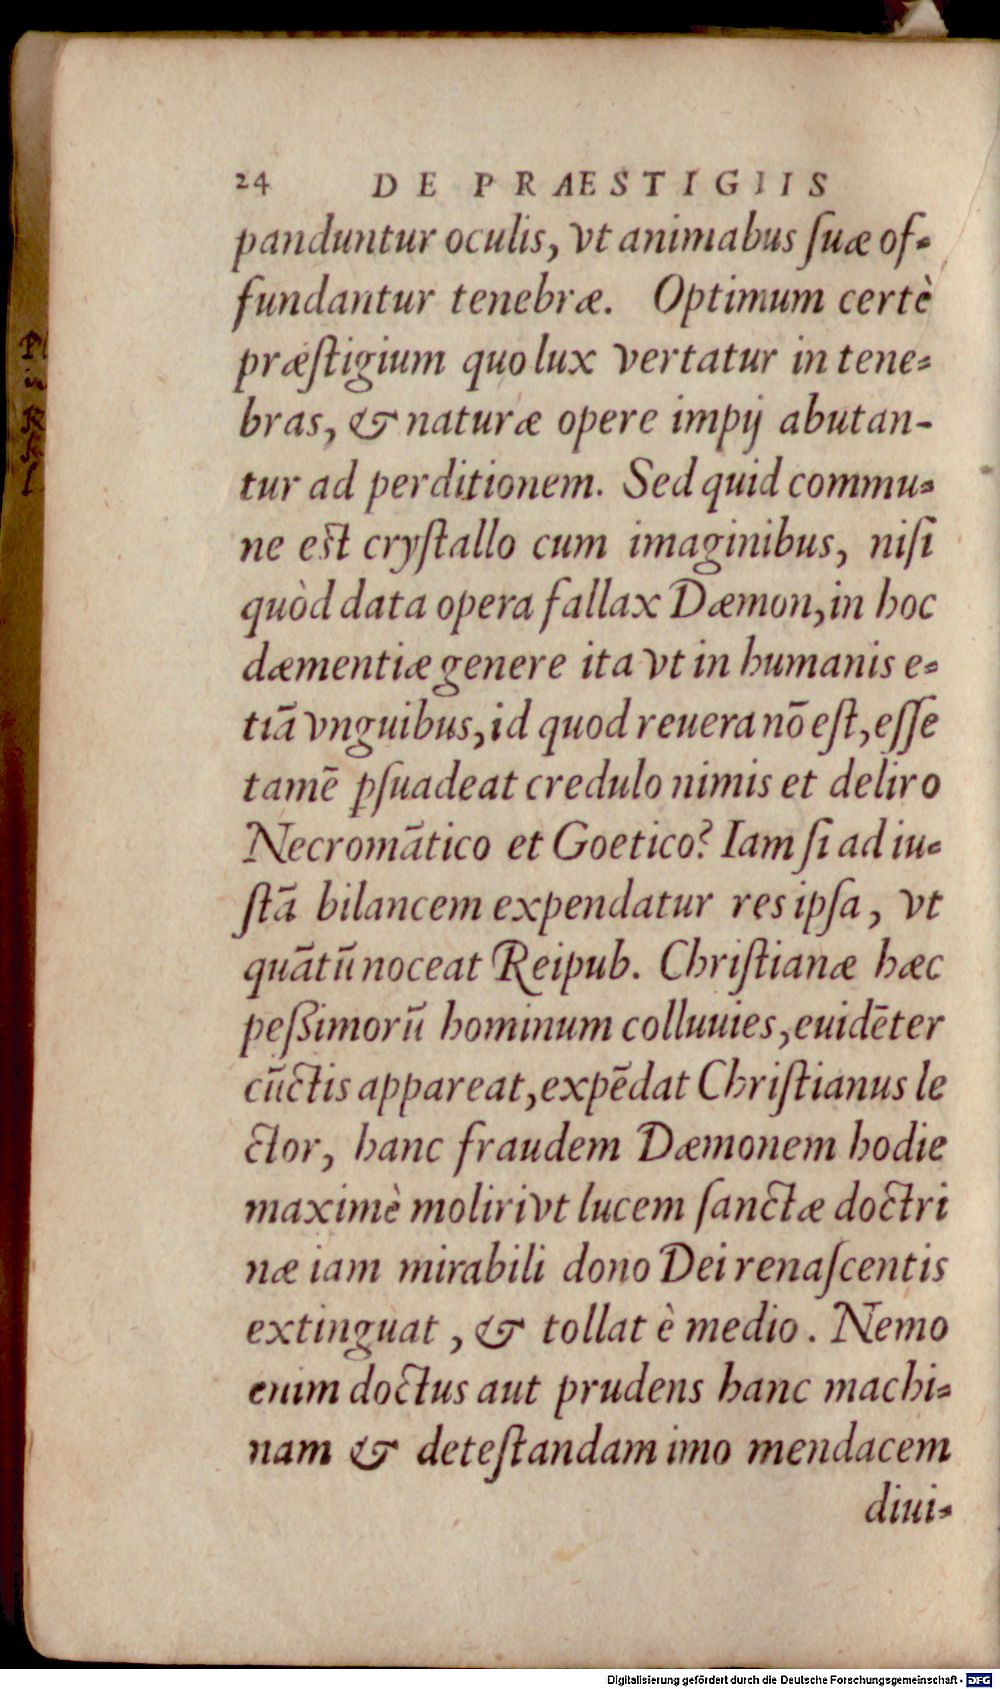 24 DE PRÆSTIGIIS
panduntur oculis, vt animabus ſuæ of-
fundantur tenebræ. Optimum certè
præſtigium quo lux vertatur in tene-
bras, & naturæ opere impij abutan-
tur ad perditionem. Sed quid commu-
ne est cryſtallo cum imaginibus, niſi
quòd data opera fallax Dæmon, in hoc
dæmentiæ genere ita vt in humanis e-
tiā vnguibus, id quod reuera nō eſt, eſſe
tamē ꝑſuadeat credulo nimis et deliro
Necromātico et Goetico? Iam ſi ad iu-
ſtā bilancem expendatur res ipſa, vt
quātū noceat Reipub. Chriſtianæ hæc
peßimorū hominum colluuies, euidēter
cūctis appareat, expēdat Chriſtianus le
ctor, hanc fraudem Dæmonem hodie
maximè moliri vt lucem ſanctæ doctri
næ iam mirabili dono Dei renaſcentis
extinguat, & tollat è medio. Nemo
enim doctus aut prudens hanc machi-
nam & deteſtandam imo mendacem
diui-
Digitalisierung gefördert durch die Deutsche Forschungsgemeinschaft - DFG